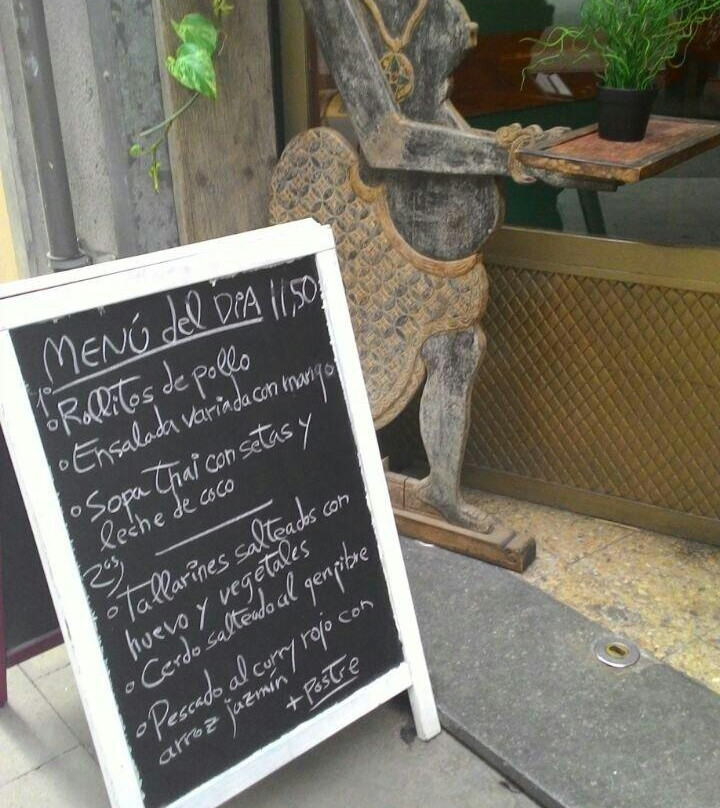 MENÚ del DIA 11,50
1º
º Rollitos de pollo
º Ensalada variada con mango
º Sopa Thai con setas y
leche de coco
2ºs)
º Tallarines salteados con
huevo y vegetales
º Cerdo salteado al genjibre
º Pescado al curry rojo con
arroz jazmín
+ Postre